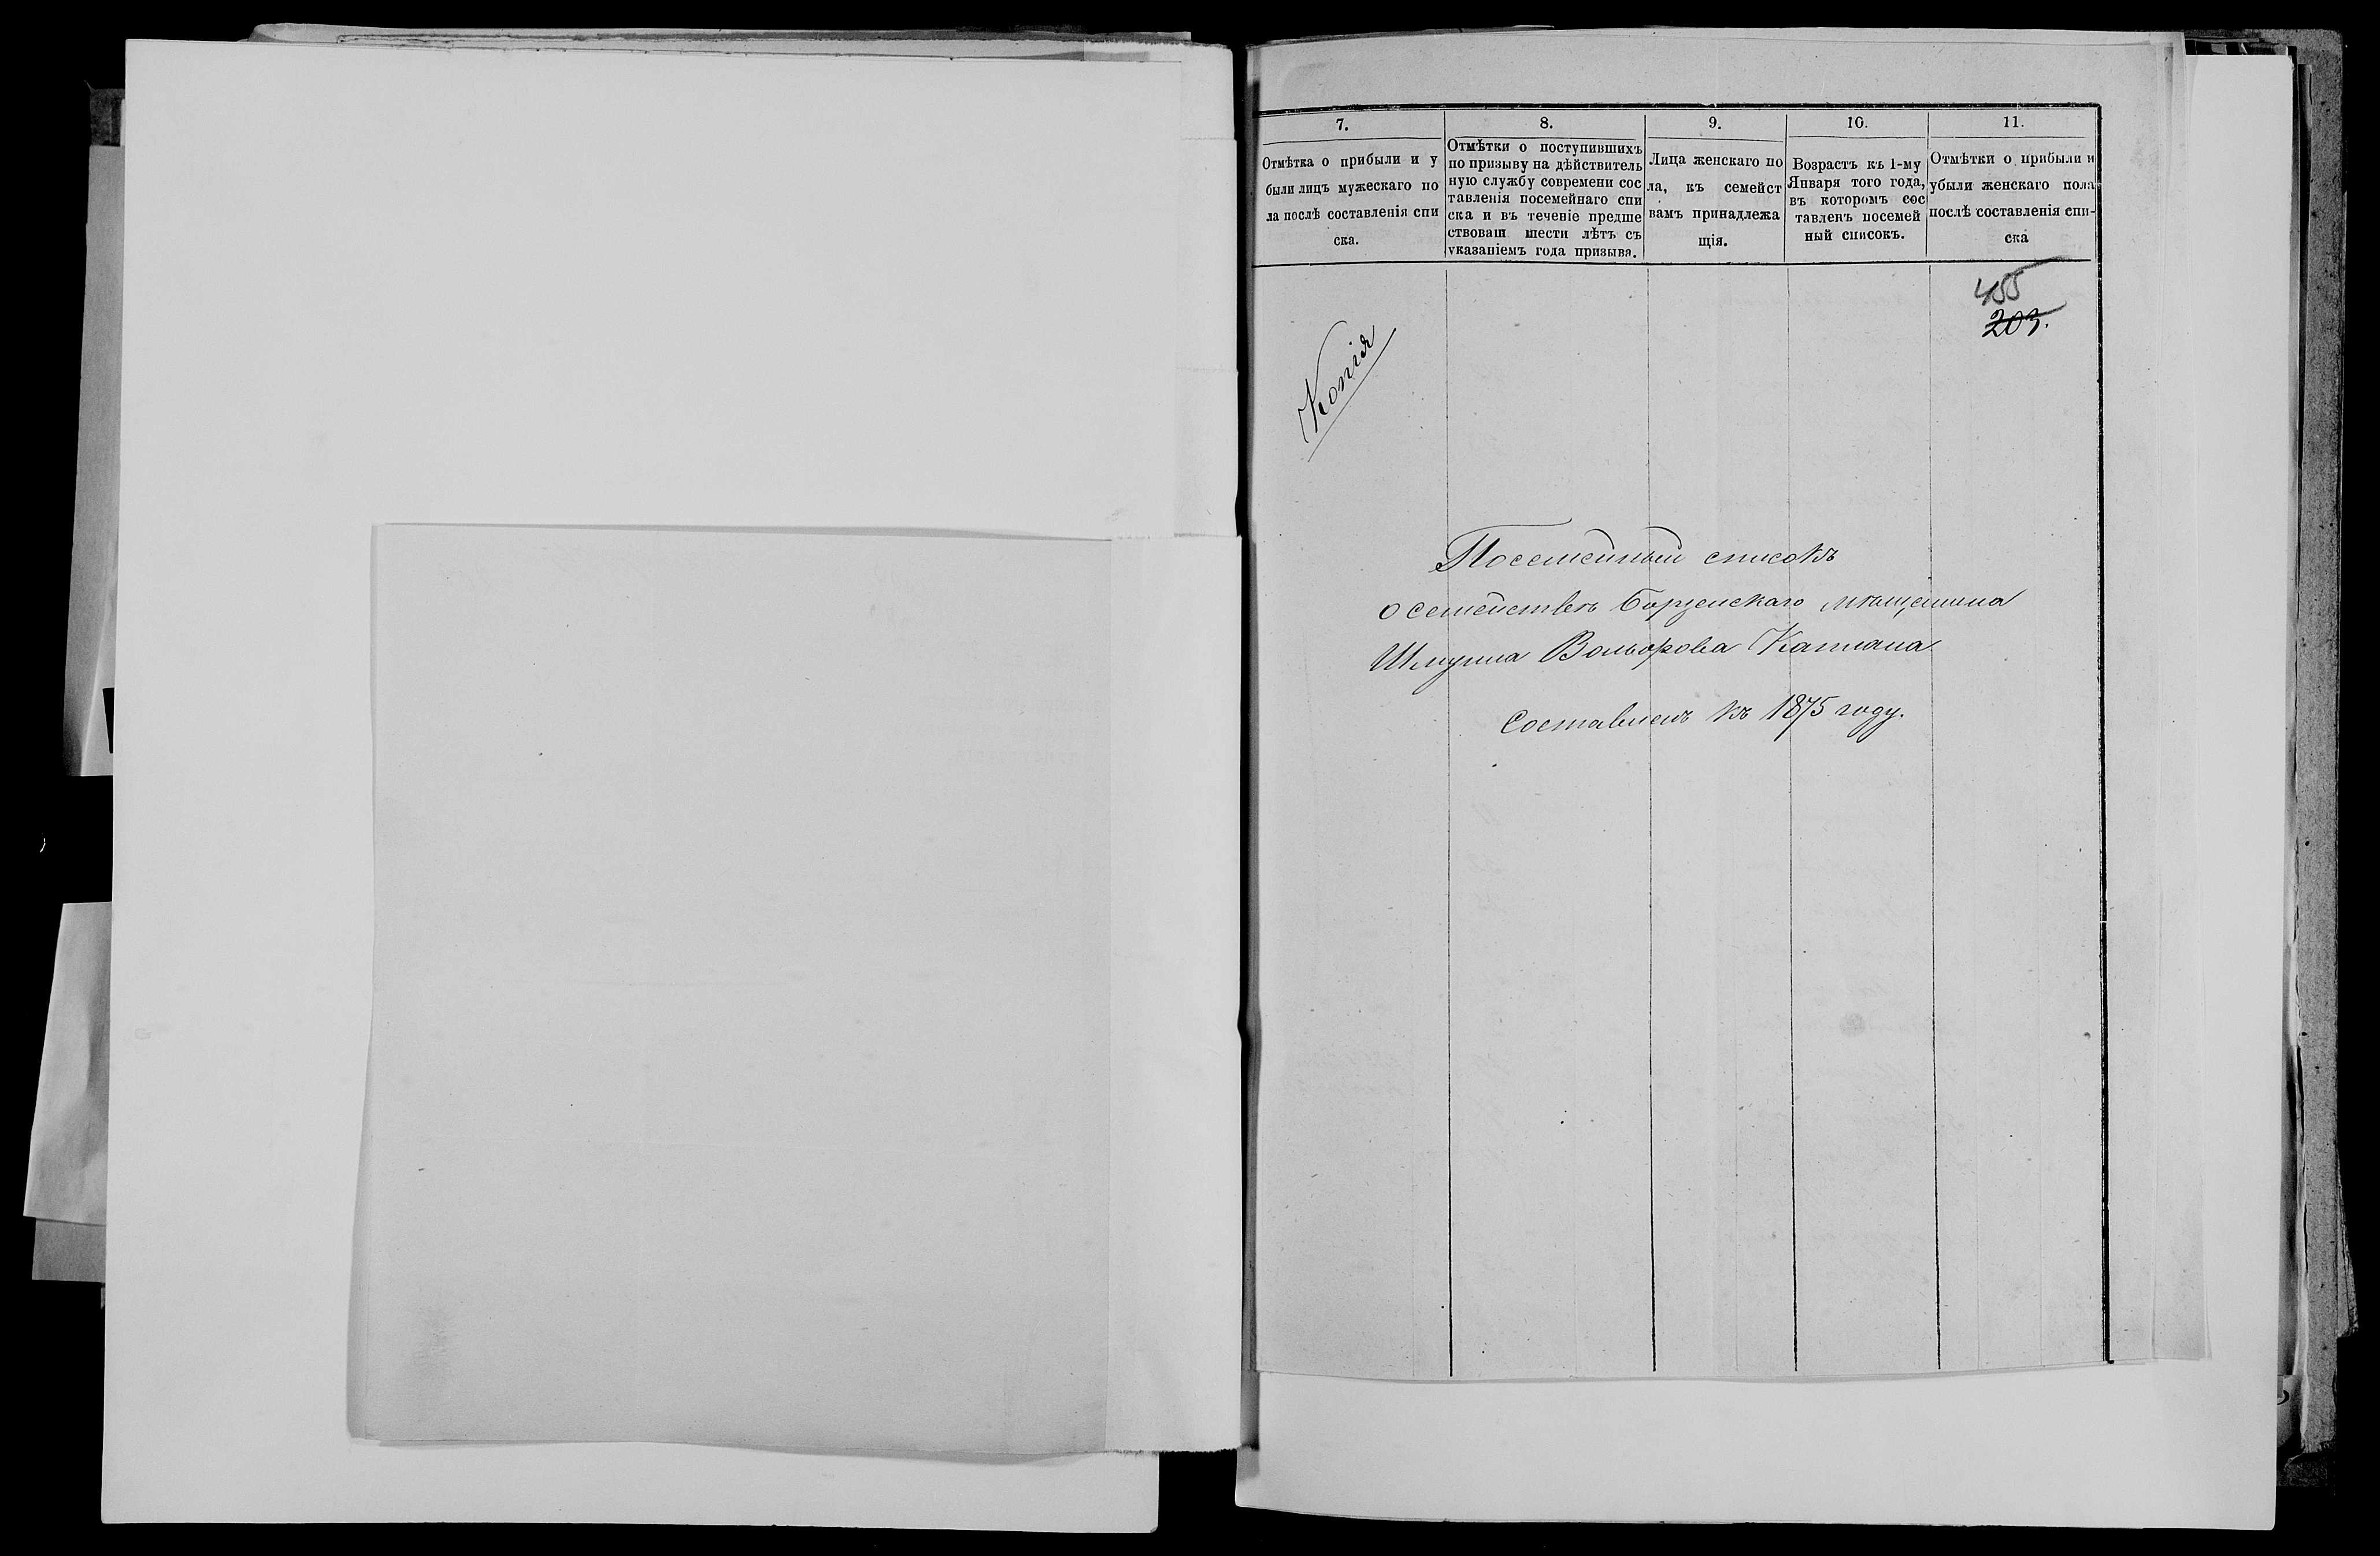 7.
Отмѣтка о прибыли и у
были лицъ мужескаго по
ла послѣ составленія спи
ска.
8.
Отмѣтки о поступившихъ
по призыву на дѣйствитель
ную службу современи сос
тавленія посемейнаго спи
ска и въ теченіе предше
ствовавш шести лѣтъ съ
указаніемъ года призыва.
9.
Лица женскаго по
ла, къ семейст
вамъ принадлежа
щія.
10.
Возрастъ къ 1-му
Января того года,
въ которомъ сос
тавленъ посемей
ный списокъ.
11.
Отмѣтки о прибыли и
убыли женскаго пола
послѣ составленія спи-
ска
455
203.
Копія
Посемейный списокъ
о семействѣ Борзенскаго мѣщанина
Шмуила Вольфова Каплана
Составленъ къ 1875 году.